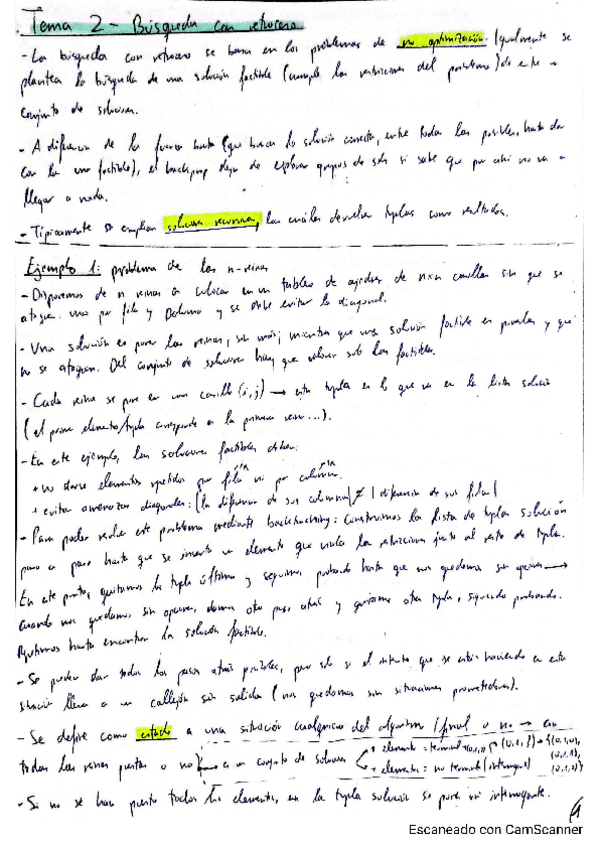 Tema 2 - Búsqueda con retroceso
- La búsqueda con retroceso se basa en los problemas de no optimización. Igualmente se
plantea la búsqueda de una solución factible (cumple las restricciones del problema) de entre un
conjunto de soluciones.
- A diferencia de la fuerza bruta (que busca la solución correcta, entre todas las posibles, hasta dar
con la una factible), el deja de explorar grupos de sols si sabe que por ahí no va a
llegar a nada.
- Típicamente se emplean soluciones recursivas, las cuáles devuelven tuplas como resultados.
Ejemplo 1: problema de las n-reinas
- Disponemos de n reinas a colocar en un tablero de ajedrez de nxn casillas sin que se
ataquen: una por fila y columna y se debe evitar la diagonal.
- Una solución es poner las reinas, sin más; mientras que una solución factible es ponerlas y que
no se ataquen. Del conjunto de soluciones hay que sólo las factibles.
- Cada reina se pone en una casilla (i,j) → esta tupla es lo que va en la lista solución
(el primer elemento/tupla corresponde a la primera reina...).
- En este ejemplo, las soluciones factibles deben:
+ no darse elementos repetidos por fila ni por columna.
+ evitar amenazas diagonales: |la diferencia de sus columnas| ≠ |diferencia de sus filas|
- Para poder resolver este problema mediante backtracking: construimos la lista de tuplas solución
paso a paso hasta que se inserta un elemento que viola las restricciones junto al resto de tuplas.
En este punto, quitamos la tupla última y seguimos probando hasta que nos quedamos sin opciones →
cuando nos quedamos sin opciones, damos otro paso atrás y quitamos otra tupla, siguiendo probando.
Repetimos hasta encontrar la solución factible.
- Se pueden dar todos los pasos atrás posibles, pero sólo si el intento que se está haciendo en esta
situación lleva a un callejón sin salida (nos quedamos sin situaciones prometedoras).
- Se define como estado a una situación cualquiera del algoritmo (final o no → con
todas las reinas puestas o no) a un conjunto de soluciones
elemento: terminal
elementos: no terminal (interrogante)
- Si no se han puesto todos los elementos, en la tupla solución se pone un interrogante.
Escaneado con CamScanner